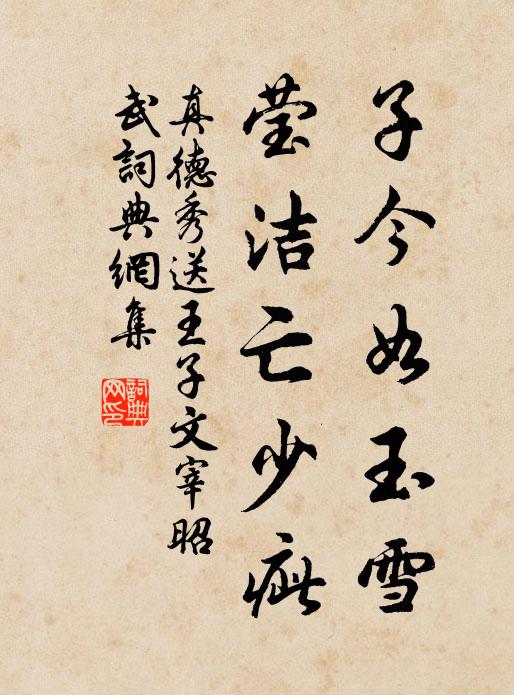 子今如玉雪
莹洁亡少疵
真德秀送王子文宰昭
武詞典網集
詞典網印